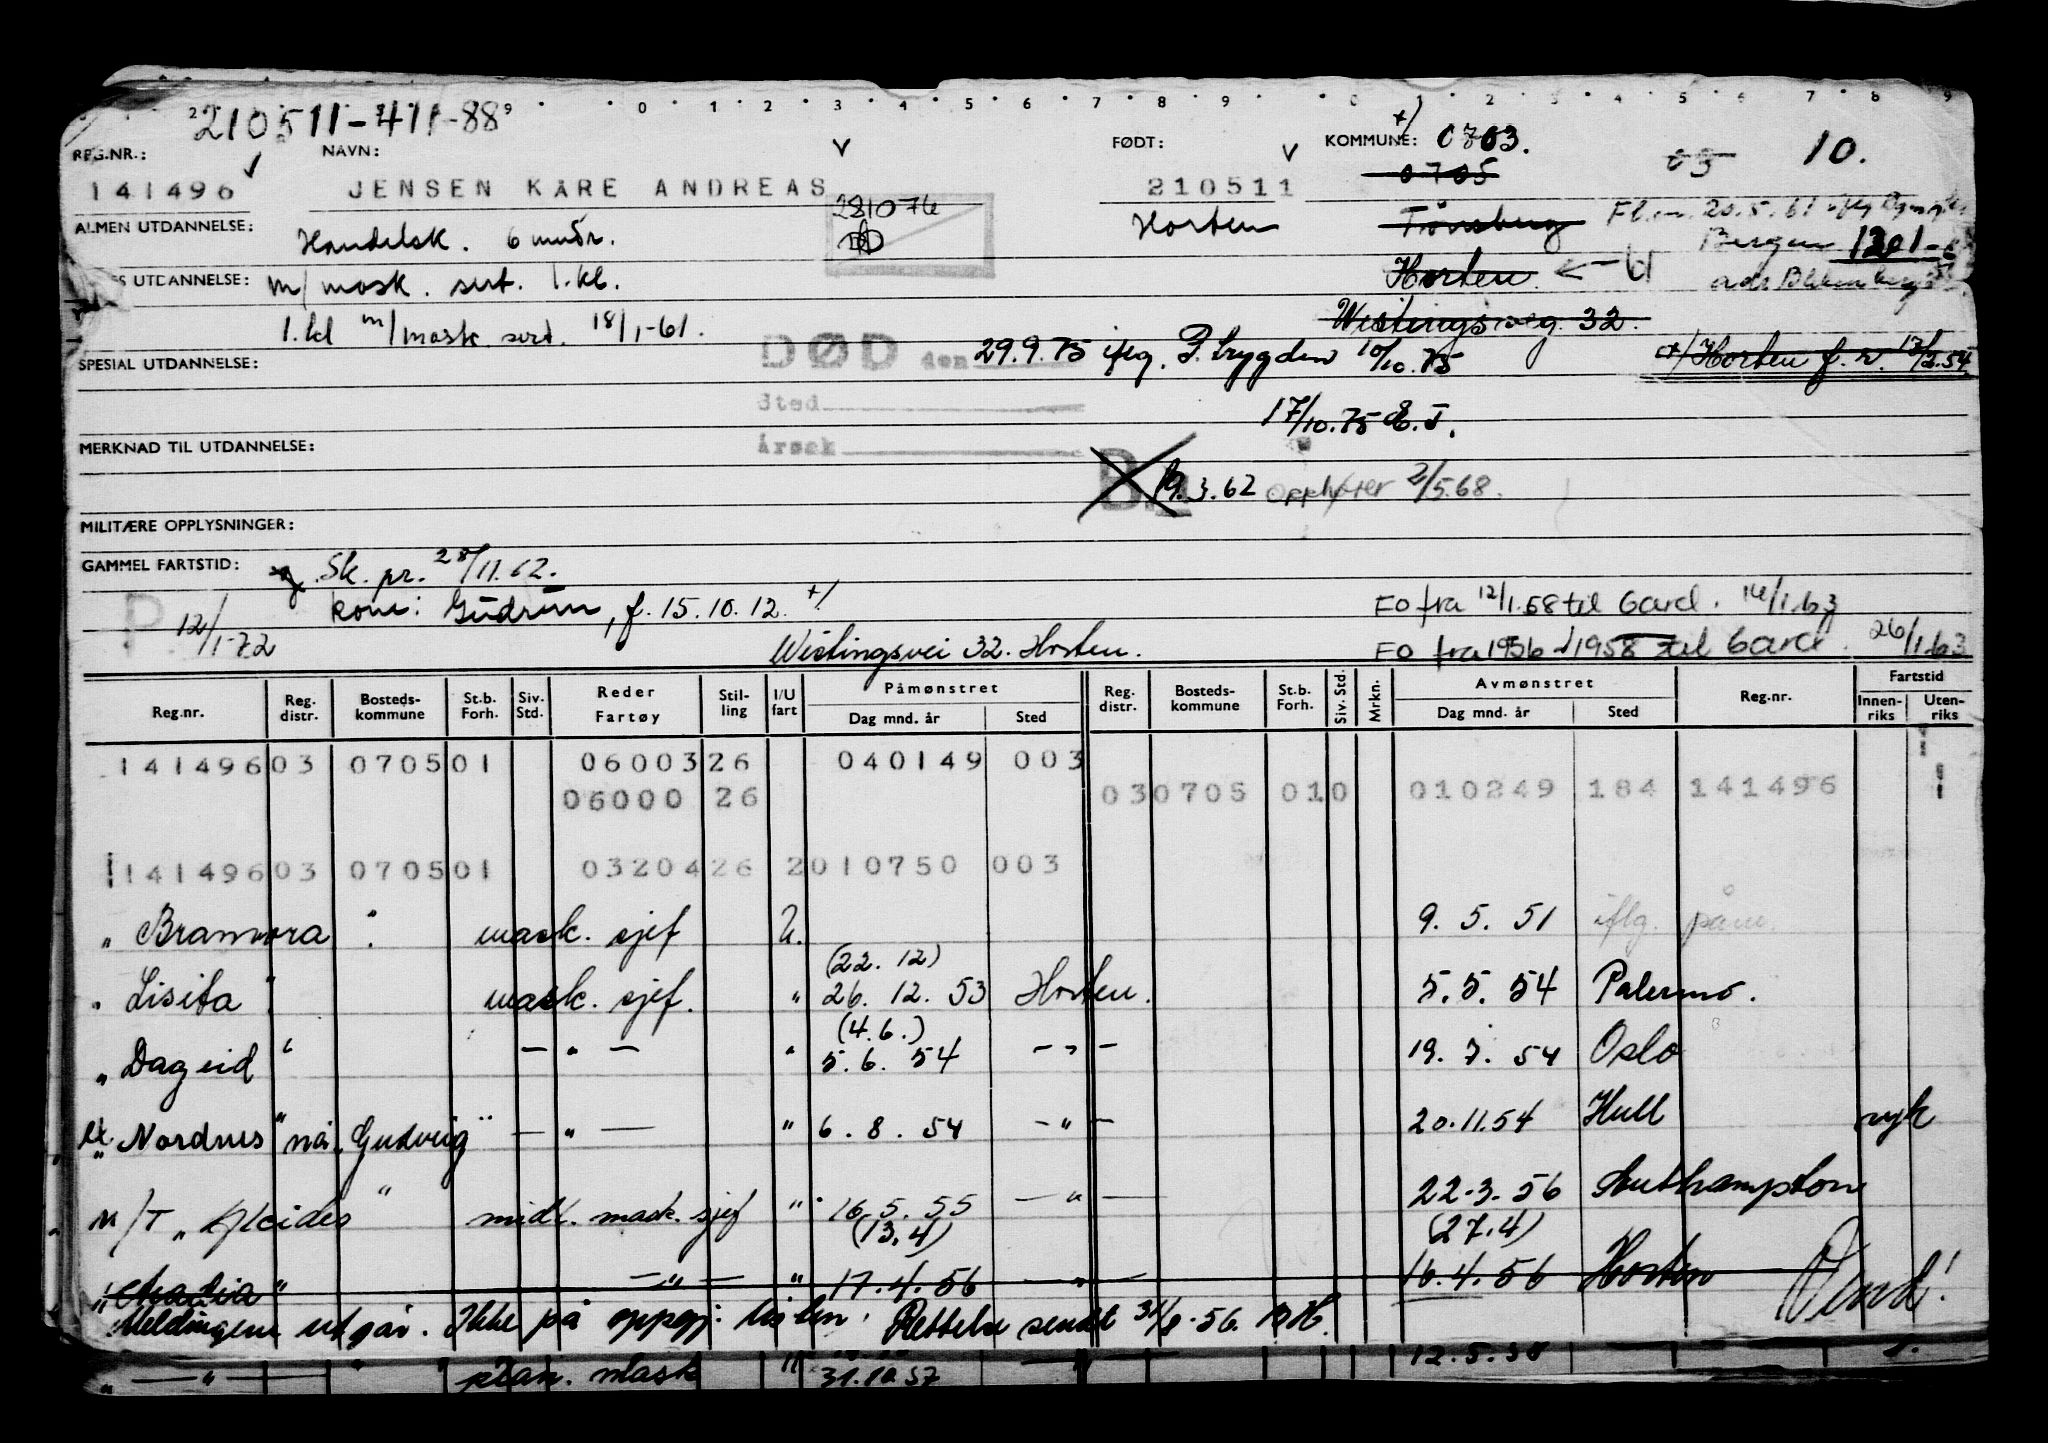 210511-411-88
REG.NR.: NAVN: FØDT: KOMMUNE: 0703. 03 10.
141496 JENSEN KÅRE ANDREAS 210511 0705
ALMEN UTDANNELSE: Handelsk. 6 mndr. 281076 Horten Tønsberg
Bergen 1201
UTDANNELSE: m/mask. sert. 1.kl. Horten
1.kl m/mask. sert. 18/1-61. Wistingsveg. 32.
SPESIAL UTDANNELSE: DØD den 29.9.75 iflg. P. trygden 10/10.75 Horten f. v. 13/2.54
Sted 17/10.75
MERKNAD TIL UTDANNELSE: Årsak
19.3.62 Opphører 2/5.68.
MILITÆRE OPPLYSNINGER:
GAMMEL FARTSTID: g. Sk. pr. 28/11.62.
kone: Gudrun, f. 15.10.12. FO fra 12/1.58 til Gard. 14/1.63
P 12/1-72 Wistingsvei 32. Horten. FO fra 1956-1958 til Gard 26/1.63
Reg.nr. Reg. distr. Bosteds-kommune St.b. Forh. Siv. Std. Reder Fartøy Stil-ling I/U fart Påmønstret Dag mnd. år Sted Reg. distr. Bosteds-kommune St.b. Forh. Siv. Std. Mrkn. Avmønstret Dag mnd. år Sted Reg.nr. Fartstid Innen-riks Uten-riks
141496 03 0705 01 06003 26 040149 003
06000 26 03 0705 010 010249 184 141496
141496 03 0705 01 03204 26 2 010750 003
"Bramora" mask. sjef U. 9. 5. 51 iflg. påm.
(22. 12)
"Lisita" mask. sjef. " 26. 12. 53 Horten. 5. 5. 54 Palermo.
(4. 6.)
"Dageid" — " — " 5. 6. 54 — " — 19. 7. 54 Oslo
"Nordnes" nå "Gudveig" — " — " 6. 8. 54 — " — 20.11.54 Hull
M/T " midl. mask. sjef " 16. 5. 55 — " — 22-3. 56 Southampton
(13.4) (27.4)
— " — " 17. 4. 56 — " — 16. 4. 56 Horten Vend!
Meldingene utgår. Ikke på oppgj. listen. Rettelse sendt
— " — mask " 31.10.57 12.5.58